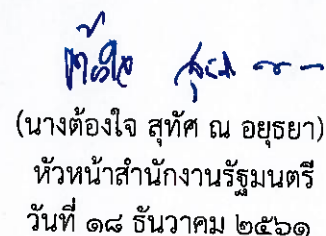 (นางต้องใจ สุทัศ ณ อยุธยา)
หัวหน้าสำนักงานรัฐมนตรี
วันที่ ๑๘ ธันวาคม ๒๕๖๑